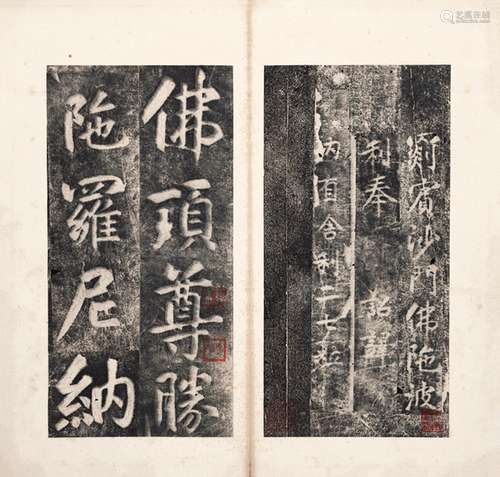 罽賓沙門佛陁波
利奉 詔譯
内舍利二七粒
佛頂尊勝
陁羅尼納
艺狐在线